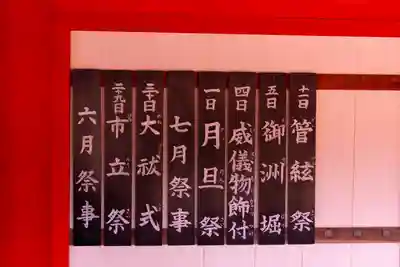 六月祭事
二十九日 市立祭
三十日 大祓式
七月祭事
一日 月旦祭
四日 威儀物飾付
五日 御洲堀
十一日 管絃祭